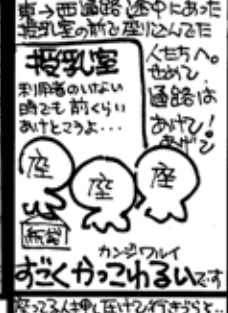 東→西通路途中にあった
授乳室の前で座り込んでた
人たちへ。
せめて
通路は
あけて!
あけて
授乳室
利用者のいない
時でも前くらい
あけとこうよ・・・
座
座
座
紙袋
カンジワルイ
すごくかっこわるいです